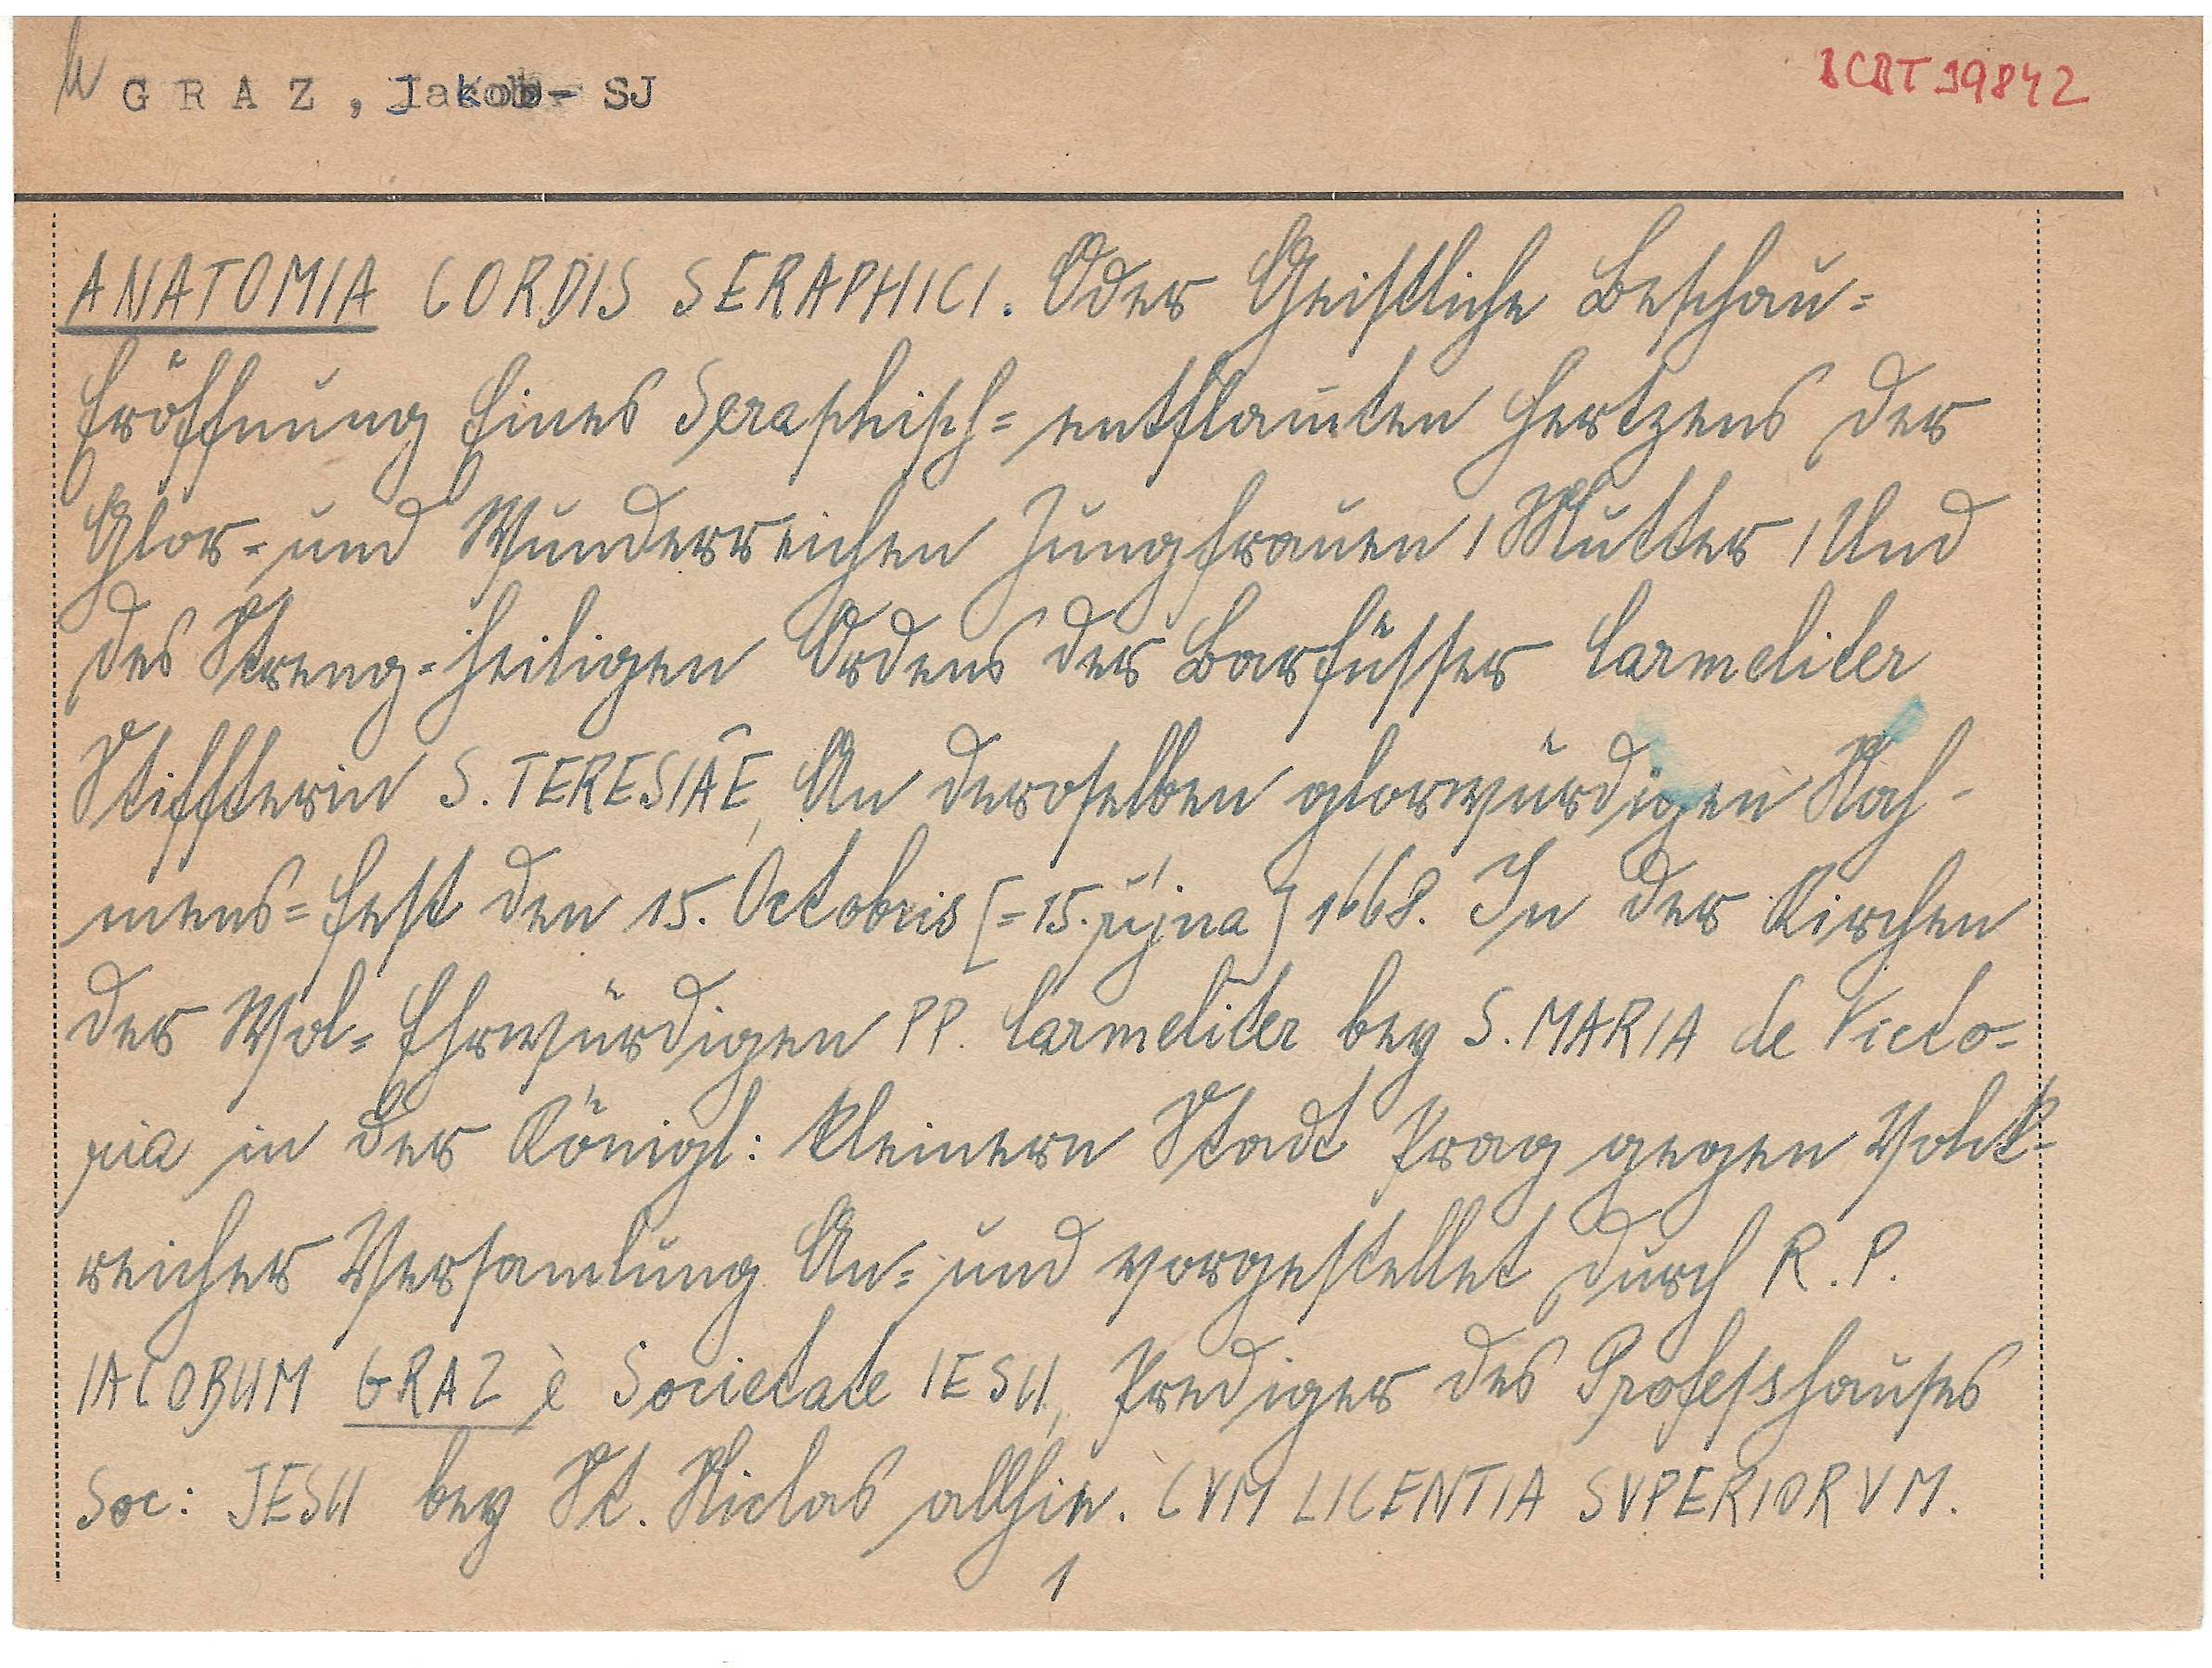 G R A Z , Jakob - SJ
BCBT 39842
ANATOMIA CORDIS SERAPHICI. Oder Geistliche Beschau=
Eröffnung Eines Seraphisch= entflam̄ten Hertzens der
Glor= und Wunderreichen Jungfrauen / Mutter / Und
des Streng=heiligen Ordens der Barfüsser Carmeliter
Stiffterin S. TERESIAE, An deroselben glorwürdigen Nah-
mens=Fest den 15. Octobris [=15. října] 1668. In der Kirchen
der Wol=Ehrwürdigen PP. Carmeliter bey S. MARIA de Victo-
ria in der Königl: kleinern Stadt Prag gegen Volck-
reicher Versamlung An= und vorgestellet durch R. P.
IACOBUM GRAZ è Societate IESU, Prediger des Professhauses
Soc: JESU bey St. Niclas allhie. CVM LICENTIA SVPERIORVM.
1